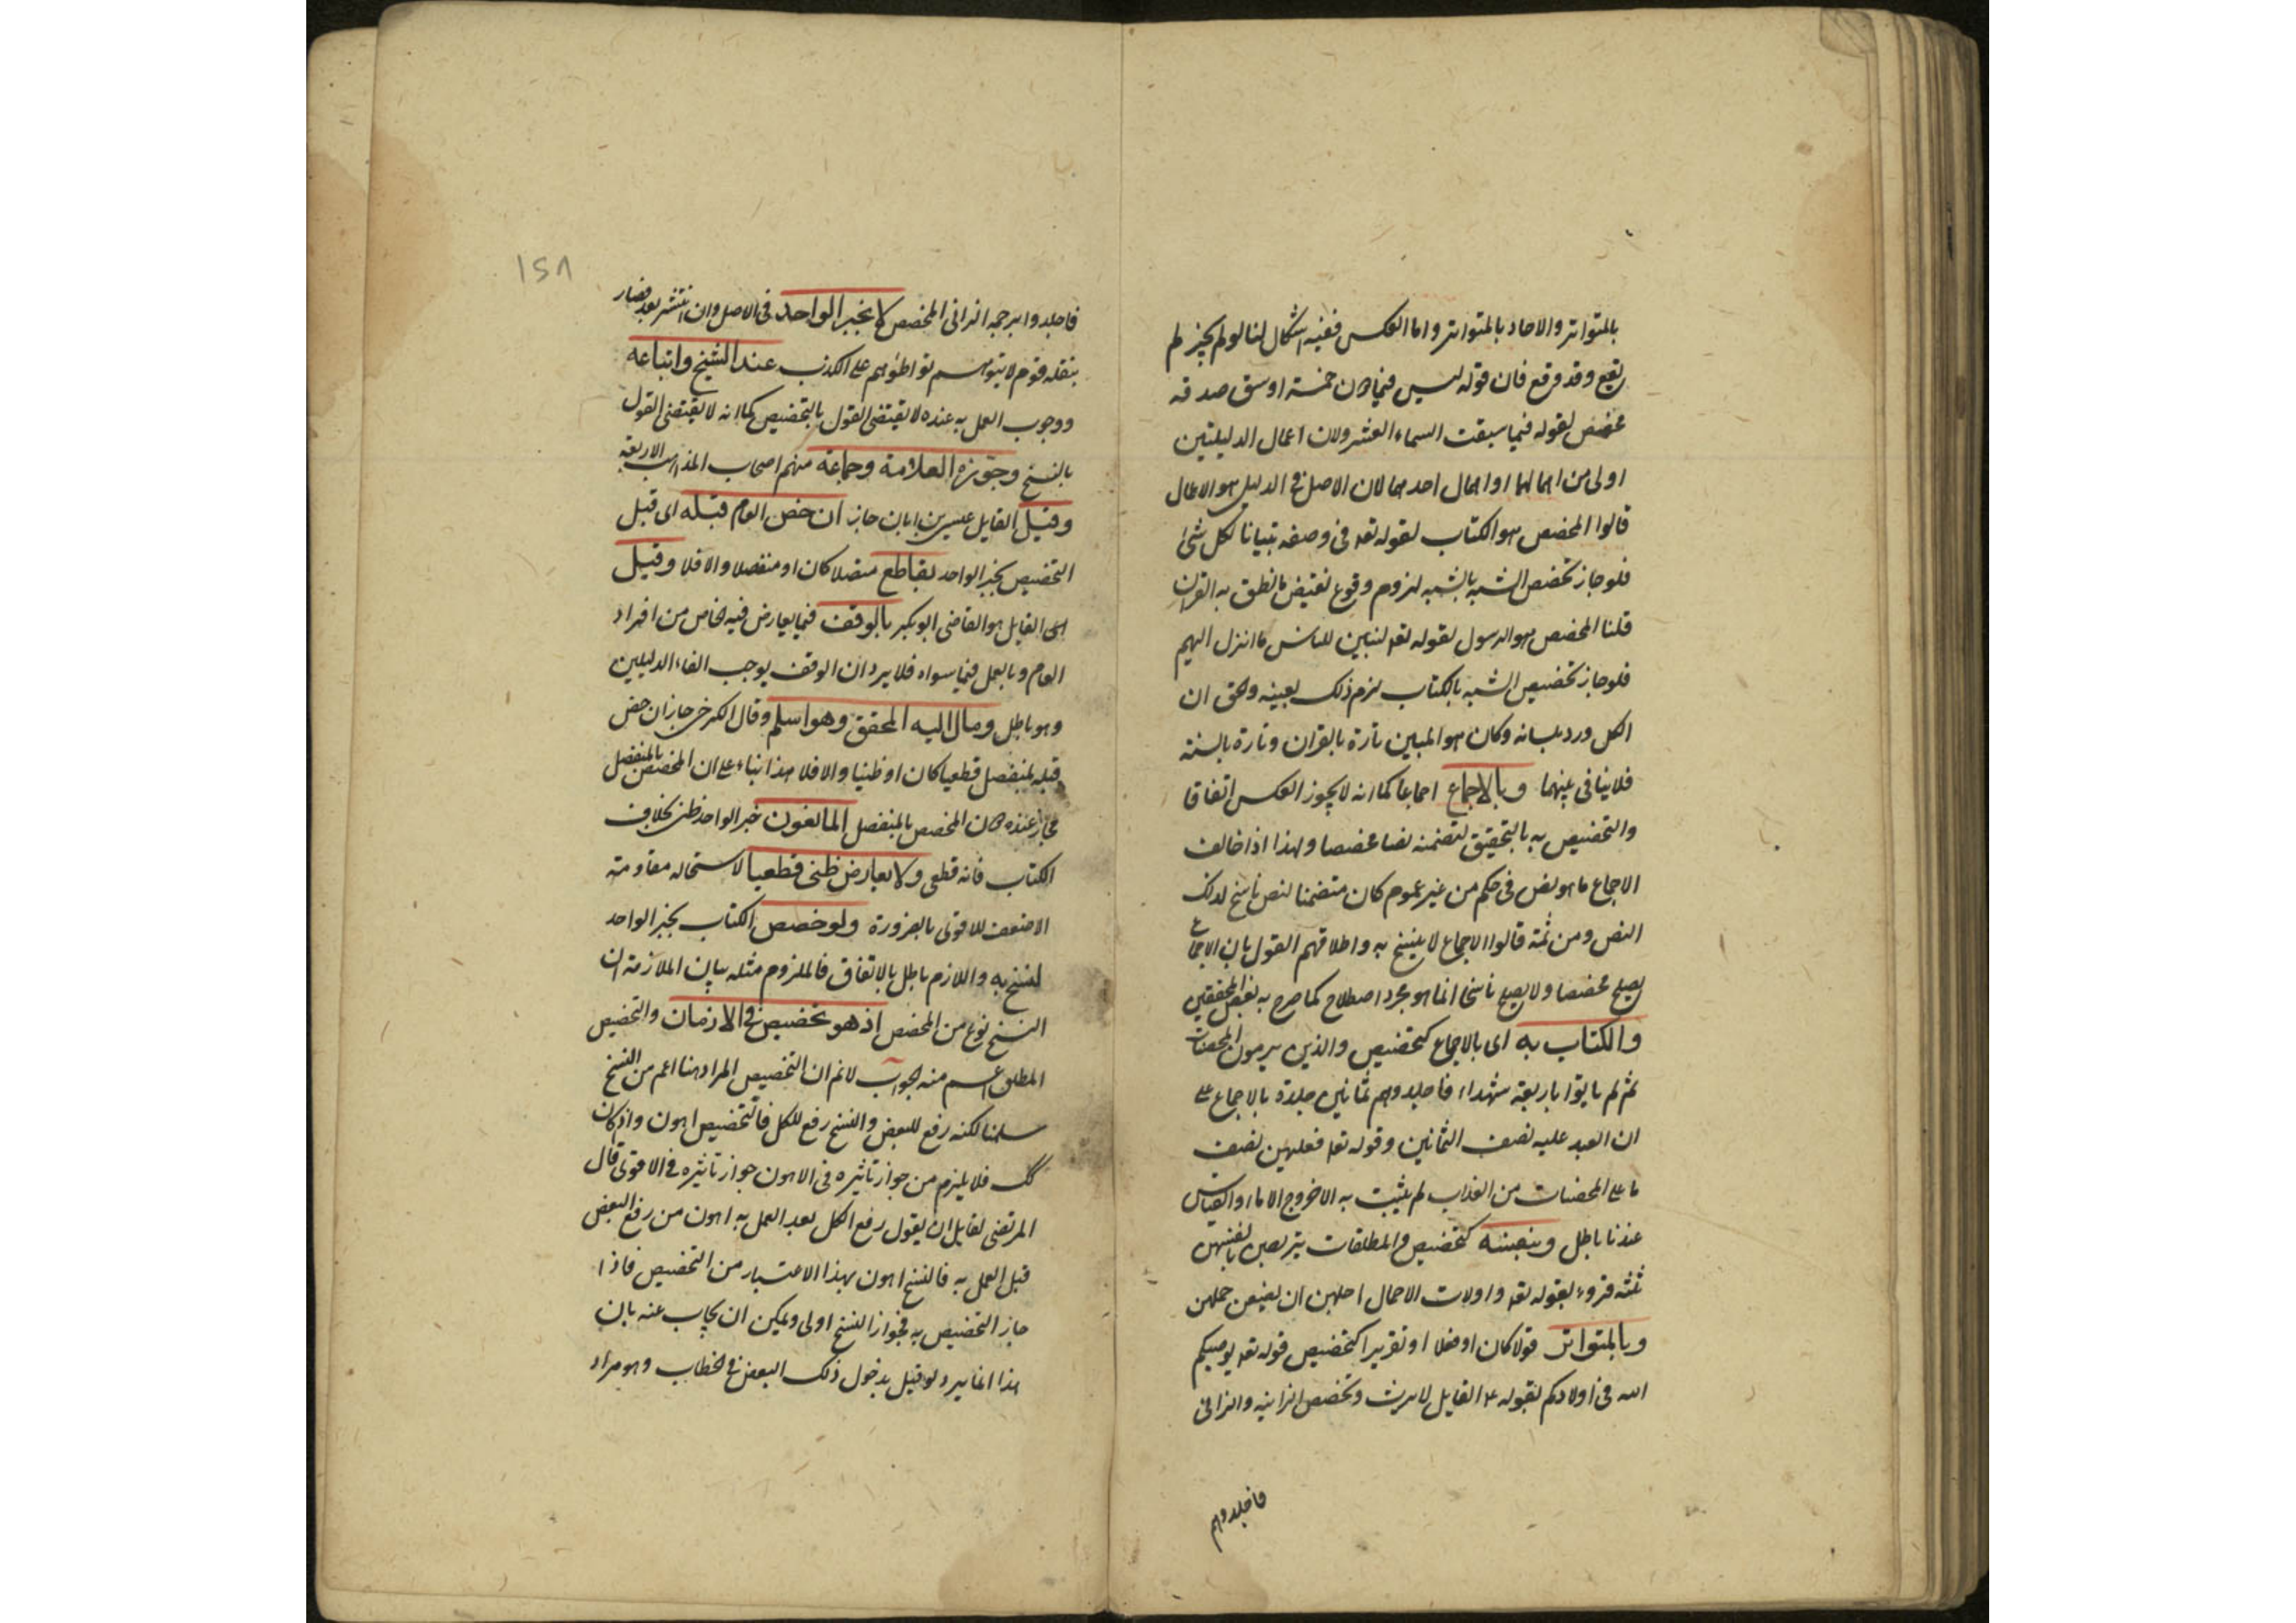 بالمتواتر والاحاد بالمتواتر واما العكس ففيه اشكال لنا لو لم يجز لم
يقع وقد وقع فان قوله ليس فيما دون خمسة اوسق صدقه
مخصص لقوله فيما سقت السماء العشر ولان اعمال الدليلين
اولى من اهمالهما او اهمال احدهما لان الاصل في الدليل هو الاعمال
قالوا المخصص هو الكتاب لقوله تعه في وصفه تبيانا لكل شئ
فلو جاز تخصيص السنه بالسنه لزوم وقوع نقيض ما نطق به القران
قلنا المخصص هو الرسول لقوله تعه لتبين للناس ما انزل اليهم
فلو جاز تخصيص السنه بالكتاب لزم ذلك بعينه والحق ان
الكل ورد بلسانه وكان هو المبين تارة بالقران وتارة بالسنة
فلا ينافى بينهما وبالاجماع اجماعا كما انه لا يجوز العكس اتفاقا
والتخصيص به بالتحقيق لتضمنه نصا مخصصا ولهذا اذا خالف
الاجماع ما هو نص في حكم من غير عموم كان متضمنا لنص ناسخ لذلك
النص ومن ثمة قالوا الاجماع لا ينسخ به واطلاقهم القول بان الاجماع
يصلح مخصصا ولا يصلح ناسخا انما هو مجرد اصطلاح كما صرح به بعض المحققين
والكتاب به اى بالاجماع كتخصيص والذين يرمون المحصنات
ثم لم ياتوا باربعة شهداء فاجلدوهم ثمانين جلدة بالاجماع على
ان العبد عليه نصف الثمانين وقوله تعه فعليهن نصف
ما على المحصنات من العذاب لم يثبت به الا خروج الاماء والقياس
عندنا باطل وبنفسه كتخصيص والمطلقات يتربصن بانفسهن
ثلثه قروء بقوله تعه واولات الاحمال اجلهن ان يضعن حملهن
وبالمتواتر قولا كان او فعلا او تقريرا كتخصيص قوله تعه يوصيكم
الله في اولادكم بقوله ع القاتل لا يرث وتخصيص الزانيه والزانى
فاجلدوهم
١٥٨
فاجلدوا برجمه الزانى المحصن لا بخبر الواحد فى الاصل وان انتشر بعد فصار
ينقله قوم لا يتوهم تواطؤهم على الكذب عند الشيخ واتباعه
ووجوب العمل به عنده لا يقتضى القول بالتخصيص كما انه لا يقتضى القول
بالنسخ وجوزه العلامة وجماعة منهم اصحاب المذاهب الاربعة
وقيل القايل عيسى بن ابان جاز ان خص العام قبله اى قبل
التخصيص بخبر الواحد بقاطع متصلا كان او منفصلا والا فلا وقيل
القايل هو القاضى ابو بكر بالوقف فيما يعارض فيه الخاص من افراد
العام وبالعمل فيما سواه فلا يرد ان الوقف يوجب الغاء الدليلين
وهو باطل ومال اليه المحقق وهو اسلم وقال الكرخى جاز ان خص
قبله بمنفصل قطعيا كان او ظنيا والا فلا هذا بناء على ان المخصص بالمنفصل
مجاز عنده دون المخصص بالمتصل المانعون خبر الواحد ظنى بخلاف
الكتاب فانه قطعى ولا يعارض ظنى قطعيا لاستحاله مقاومة
الاضعف للاقوى بالضرورة ولو خصص الكتاب بخبر الواحد
لنسخ به واللازم باطل بالاتفاق فالملزوم مثله بيان الملازمة ان
النسخ نوع من المخصص اذ هو تخصيص في الازمان والتخصيص
المطلق اعم منه الجواب لا نم ان التخصيص المراد هنا اعم من النسخ
سلمنا لكنه رفع للبعض والنسخ رفع للكل فالتخصيص اهون واذ كان
كك فلا يلزم من جواز تاثيره في الاهون جواز تاثيره في الاقوى قال
المرتضى لقايل ان يقول رفع الكل بعد العمل به اهون من رفع البعض
قبل العمل به فالنسخ اهون بهذا الاعتبار من التخصيص فاذا
جاز التخصيص به فجواز النسخ اولى ويمكن ان يجاب عنه بان
هذا انما يرد لو قيل بدخول ذلك البعض في الخطاب وهو مراد